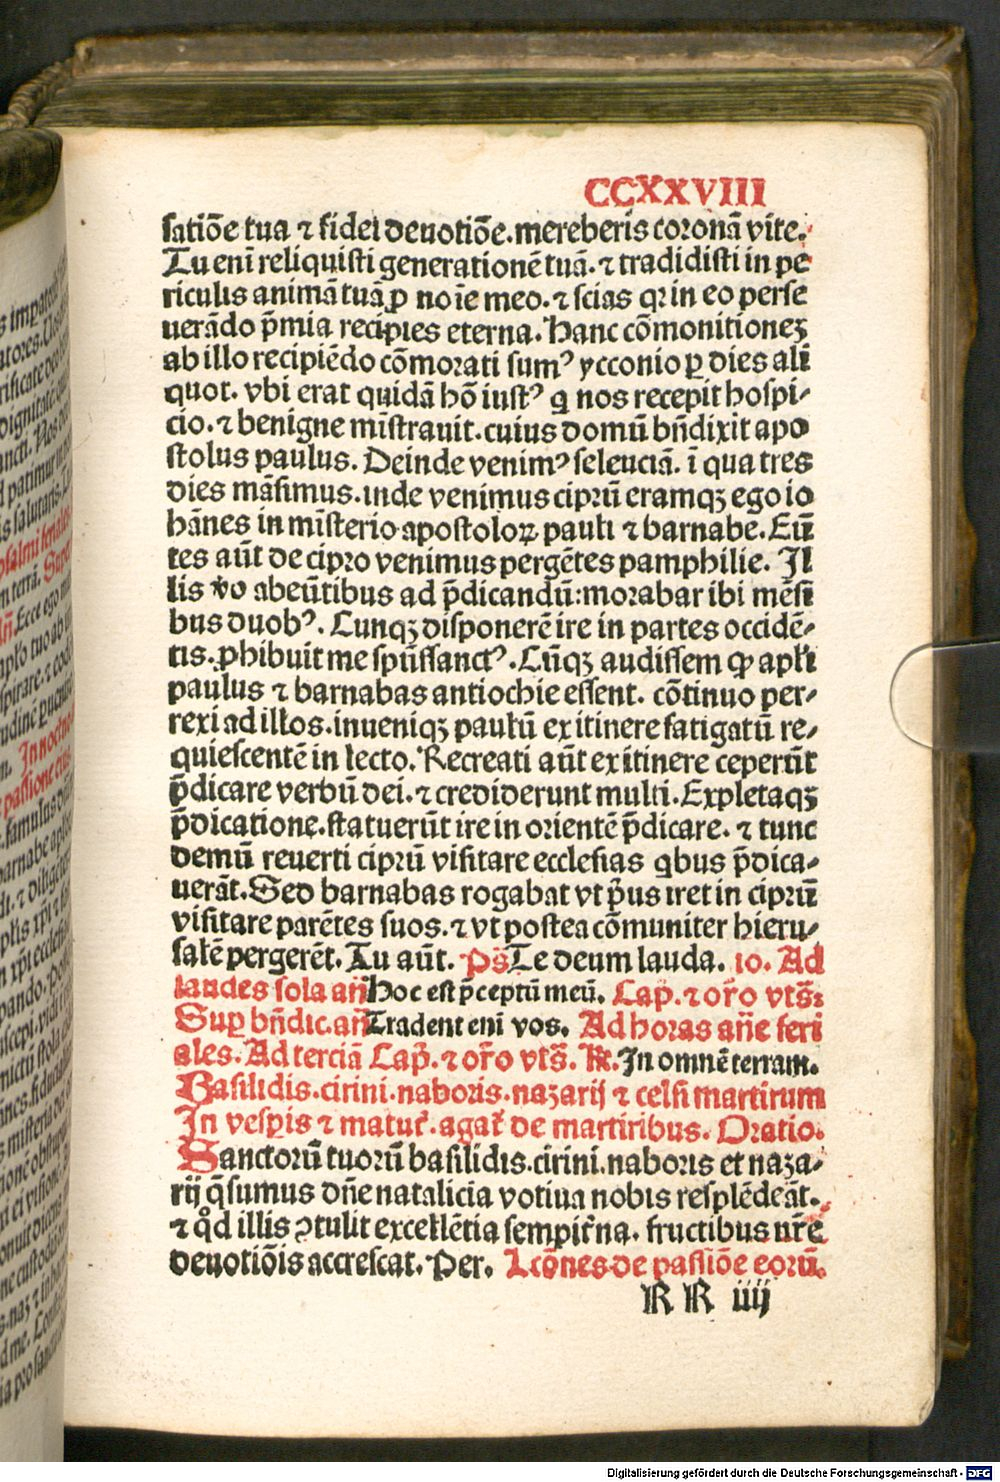 CCXXVIII
satiōe tua ⁊ fidei deuotiōe.mereberis coronā vite.
Tu eni̅ reliquisti generationē tuā.⁊ tradidisti in pe
riculis animā tuā ꝓ noi̅e meo.⁊ scias qꝛ in eo perse
uerādo p̄mia recipies eterna. Hanc cōmonitioneꝫ
ab illo recipiēdo cōmorati sumꝰ ycconio ꝑ dies ali
quot. vbi erat quidā hō iustꝰ q nos recepit hospi⸗
cio.⁊ benigne mi̅strauit.cuius domū bn̄dixit apo
stolus paulus. Deinde venimꝰ seleuciā. ī qua tres
dies māsimus.inde venimus ciprū eramqꝫ ego io
hānes in mi̅sterio apostoloꝝ pauli ⁊ barnabe. Eū
tes aūt de cipro venimus pergētes pamphilie. Il
lis v̄o abeūtibus ad p̄dicandū:morabar ibi mēsi
bus duobꝰ. Cunqꝫ disponerē ire in partes occidē⸗
tis.ꝓhibuit me spūssanctꝰ. Cūqꝫ audissem ꝙ apl̄i
paulus ⁊ barnabas antiochie essent. cōtinuo per⸗
rexi ad illos.inueniqꝫ paulū ex itinere fatigatū re⸗
quiescentē in lecto. Recreati aūt ex itinere ceperūt
p̄dicare verbū dei.⁊ crediderunt multi. Expletaqꝫ
p̄dicatione.statuerūt ire in orientē p̄dicare. ⁊ tunc
demū reuerti ciprū visitare ecclesias qbus p̄dica⸗
uerāt. Sed barnabas rogabat vt p̄us iret in ciprū
visitare parētes suos.⁊ vt postea cōmuniter hieru⸗
salē pergerēt. Tu aūt. Ps̄ Te deum lauda. io. Ad
laudes sola añ Hoc est p̄ceptū meū. Cap̄. ⁊ or̄o vts̄:
Suꝑ bn̄dic.añ Tradent eni̅ vos. Ad horas añe feri
ales. Ad terciā Cap̄. ⁊ or̄o vts̄. ℟. In omnē terram.
Basilidis.cirini.naboris.nazarij ⁊ celsi martirum
In vesꝑis ⁊ matut̄.agat̄ de martiribus. Oratio.
Sanctorū tuorū basilidis.cirini.naboris et naza⸗
rij q̄sumus dn̄e natalicia votiua nobis resplēdeāt.
⁊ qd̄ illis ꝯtulit excellētia sempit̄na. fructibus nr̄e
deuotiōis accrescat. Per. Lcōnes de passiōe eorū.
RR iiij
Digitalisierung gefördert durch die Deutsche Forschungsgemeinschaft - DFG